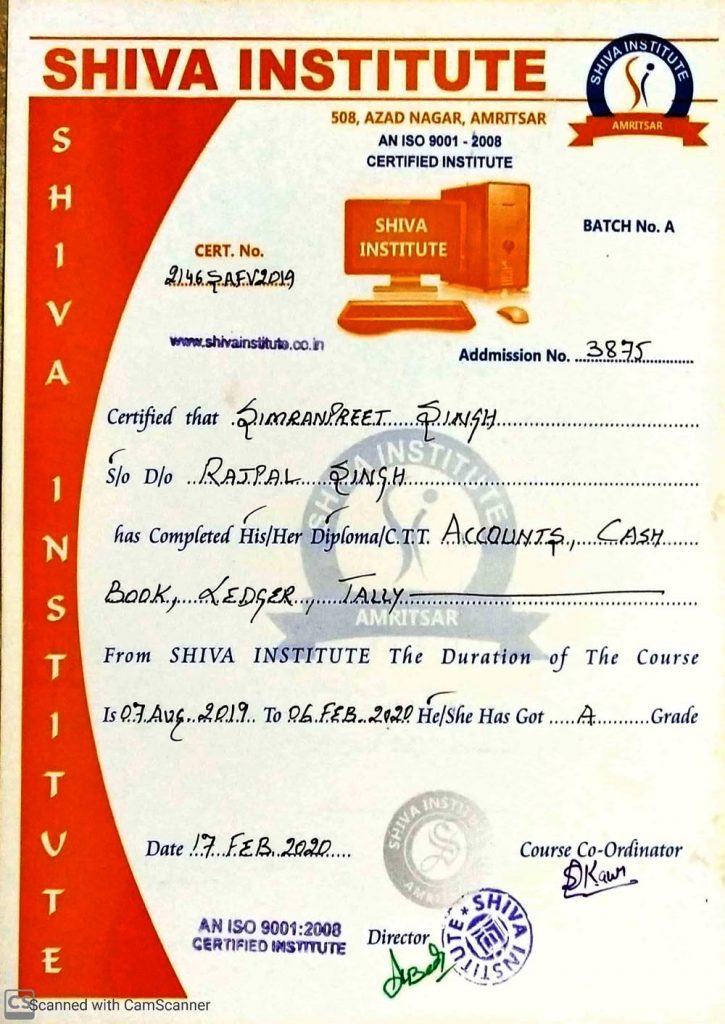 SHIVA INSTITUTE
SHIVA INSTITUTE
AMRITSAR
508, AZAD NAGAR, AMRITSAR
AN ISO 9001 - 2008
CERTIFIED INSTITUTE
SHIVA INSTITUTE
SHIVA
INSTITUTE
BATCH No. A
CERT. No.
2146SAFV2019
www.shivainstitute.co.in
Addmission No. 3875
Certified that SIMRANPREET SINGH
S/o D/o RAJPAL SINGH
has Completed His/Her Diploma/C.T.T. ACCOUNTS, CASH
BOOK, LEDGER, TALLY
SHIVA INSTITUTE
AMRITSAR
From SHIVA INSTITUTE The Duration of The Course
Is 07 AUG. 2019 To 06 FEB. 2020 He/She Has Got A Grade
Date 17 FEB 2020
SHIVA INSTITUTE
Course Co-Ordinator
DKaur
AN ISO 9001:2008
CERTIFIED INSTITUTE
Director
SHIVA INSTITUTE
CS Scanned with CamScanner